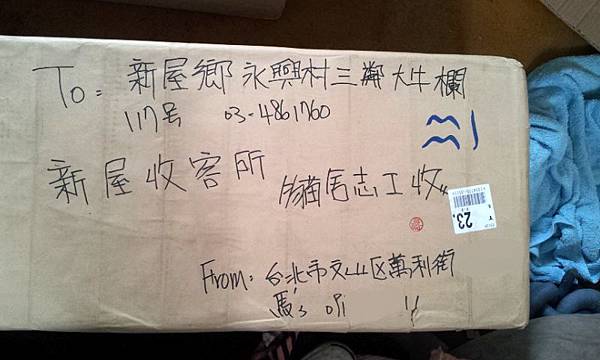 To: 新屋鄉永興村三鄰大牛欄
117号 03-4861760
新屋收容所
貓舍志工收
23
From: 台北市文山区萬利街